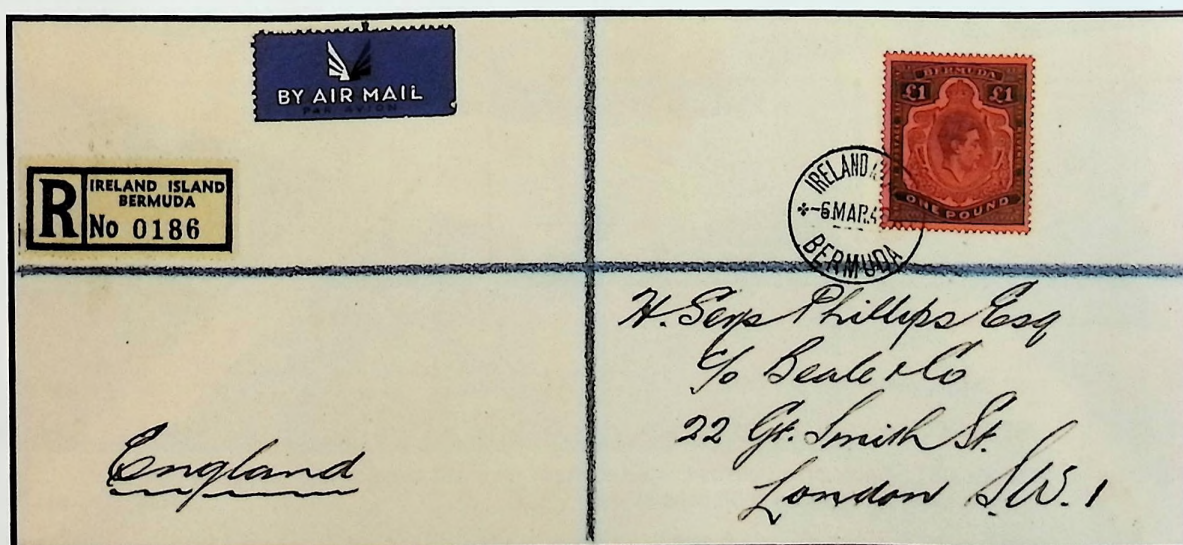 BY AIR MAIL
PAR AVION
R
IRELAND ISLAND
BERMUDA
No 0186
BERMUDA
£1 £1
ONE POUND
IRELAND
-6 MAR
BERMUDA
H. Phillips Esq
c/o Beale & Co
22 Gt. Smith St.
London S.W.1
England